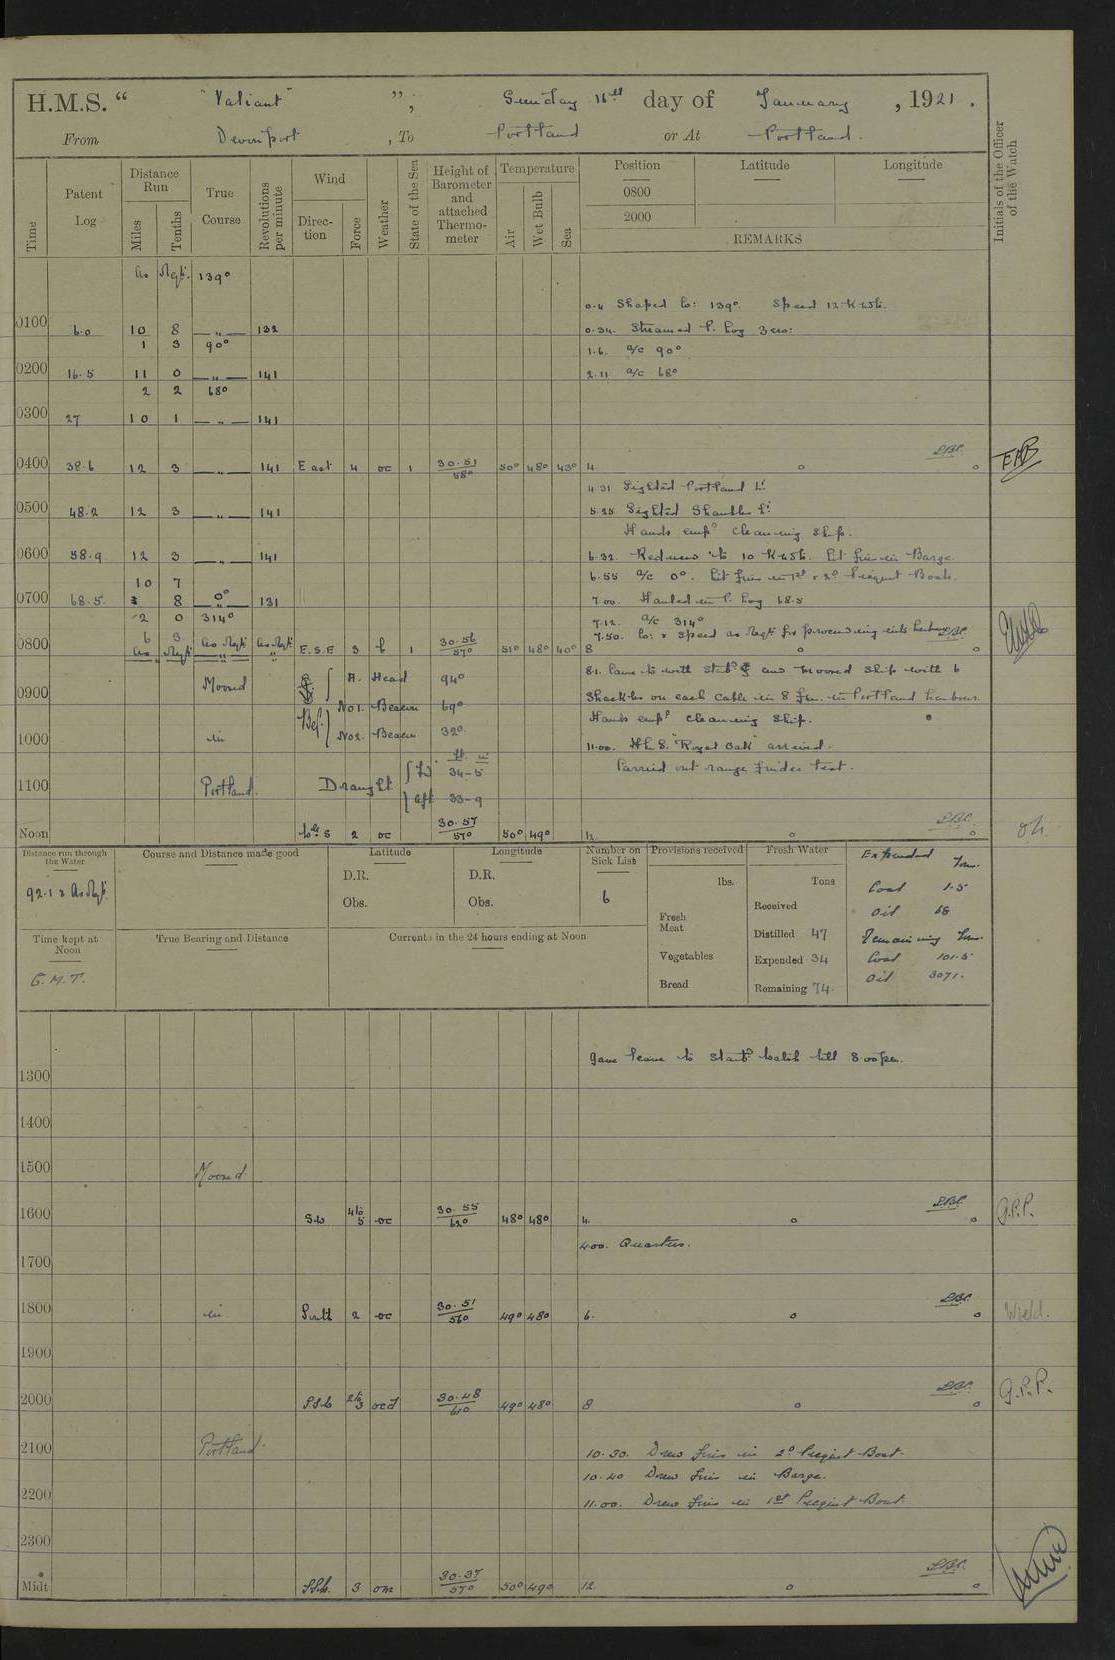 H.M.S. “ "Valiant" ”, Sunday 16th day of January, 1921.
From Devonport, To Portland or At Portland.
Initials of the Officer of the Watch
Time
Patent Log
Distance Run
Miles
Tenths
True Course
Revolutions per minute
Wind
Direction
Force
Weather
State of the Sea
Height of Barometer and attached Thermometer
Temperature
Air
Wet Bulb
Sea
Position
Latitude
Longitude
0800
2000
REMARKS
As Reqte. 139°
0.4 Shaped Co: 139°. Speed 12 Knots.
0100 6.0 10 8 — „ — 132 0.34. Streamed P. Log Zero:
1 3 90°
1.6. a/c 90°
0200 16.5 11 0 — „ — 141 2.11 a/c 68°
2 2 68°
0300 27 10 1 — „ — 141
0400 38.6 12 3 — „ — 141 East 4 oc 1 30.51 / 58° 50° 48° 43° 4
4.31 Sighted Portland Lt.
0500 48.2 12 3 — „ — 141 5.25 Sighted Shambles Lt.
Hands empd cleaning ship.
0600 58.9 12 3 — „ — 141 6.32 Reduced to 10 Knots. Lit fires in Barge.
10 7 6.55 a/c 0°. Lit fires in 1st & 2d Picquet Boats.
0700 68.5 8 0° 131 7.00. Hauled in P. Log 68.5
2 0 314° 7.12. a/c 314°
7.50. Co: & speed as Reqte for proceeding into harbour
0800 6 3 As Reqte As Reqte As Reqte E.S.E 3 b 1 30.56 / 57° 51° 48° 40° 8
Moored A. Head 94° 81. Came to with starbd and moored ship with 6
0900 No1. Beacon 69° Shackles on each cable in 8 fm. in Portland harbour.
Hands empd cleaning ship.
1000 in No2. Beacon 32°
11.00. H.M.S. "Royal Oak" arrived.
ft. in
Carried out range finder test.
1100 Portland. Draught Fd 34-5
aft 33-9
Noon S 2 oc 30.57 / 57° 50° 49° 12
Distance run through the Water
92.1 & As Reqte
Course and Distance made good
Latitude
D.R.
Obs.
Longitude
D.R.
Obs.
Number on Sick List
6
Provisions received
lbs.
Fresh Meat
Vegetables
Bread
Fresh Water
Tons
Received
Distilled 47
Expended 34
Remaining 74
Expended Tons.
Coal 1.5
Oil 68
Remaining Tons.
Coal 101.5
Oil 3071.
Time kept at Noon
G.M.T.
True Bearing and Distance
Currents in the 24 hours ending at Noon
Gave leave to starbd watch till 8.00pm.
1300
1400
1500 Moored
1600 SW 4 to 5 oc 30.55 / 62° 48° 48° 4. G.P.P.
4.00. Quarters.
1700
1800 in South 2 oc 30.51 / 56° 49° 48° 6.
1900
2000 SSW 2 to 3 ocd 30.48 / 61° 49° 48° 8 G.P.P.
2100 Portland. 10.30. Drew fires in 2d Picquet Boat.
10.40 Drew fires in Barge.
2200 11.00. Drew fires in 1st Picquet Boat.
2300
Midt SSW. 3 om 30.37 / 57° 50° 49° 12